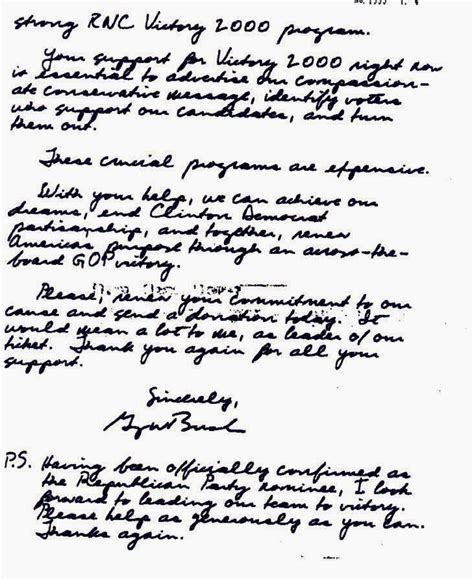 strong RNC Victory 2000 program.
Your support for Victory 2000 right now
is essential to advertise our compassion-
ate conservative message, identify voters
who support our candidates, and turn
them out.
These crucial programs are expensive.
With your help, we can achieve our
dreams, end Clinton Democrat
partisanship, and together, renew
America's purpose through an across-the-
board GOP victory.
Please, renew your commitment to our
cause and send a donation today. It
would mean a lot to me, as leader of our
ticket. Thank you again for all your
support.
Sincerely,
P.S. Having been officially confirmed as
the Republican Party nominee, I look
forward to leading our team to victory.
Please help as generously as you can.
Thanks again.